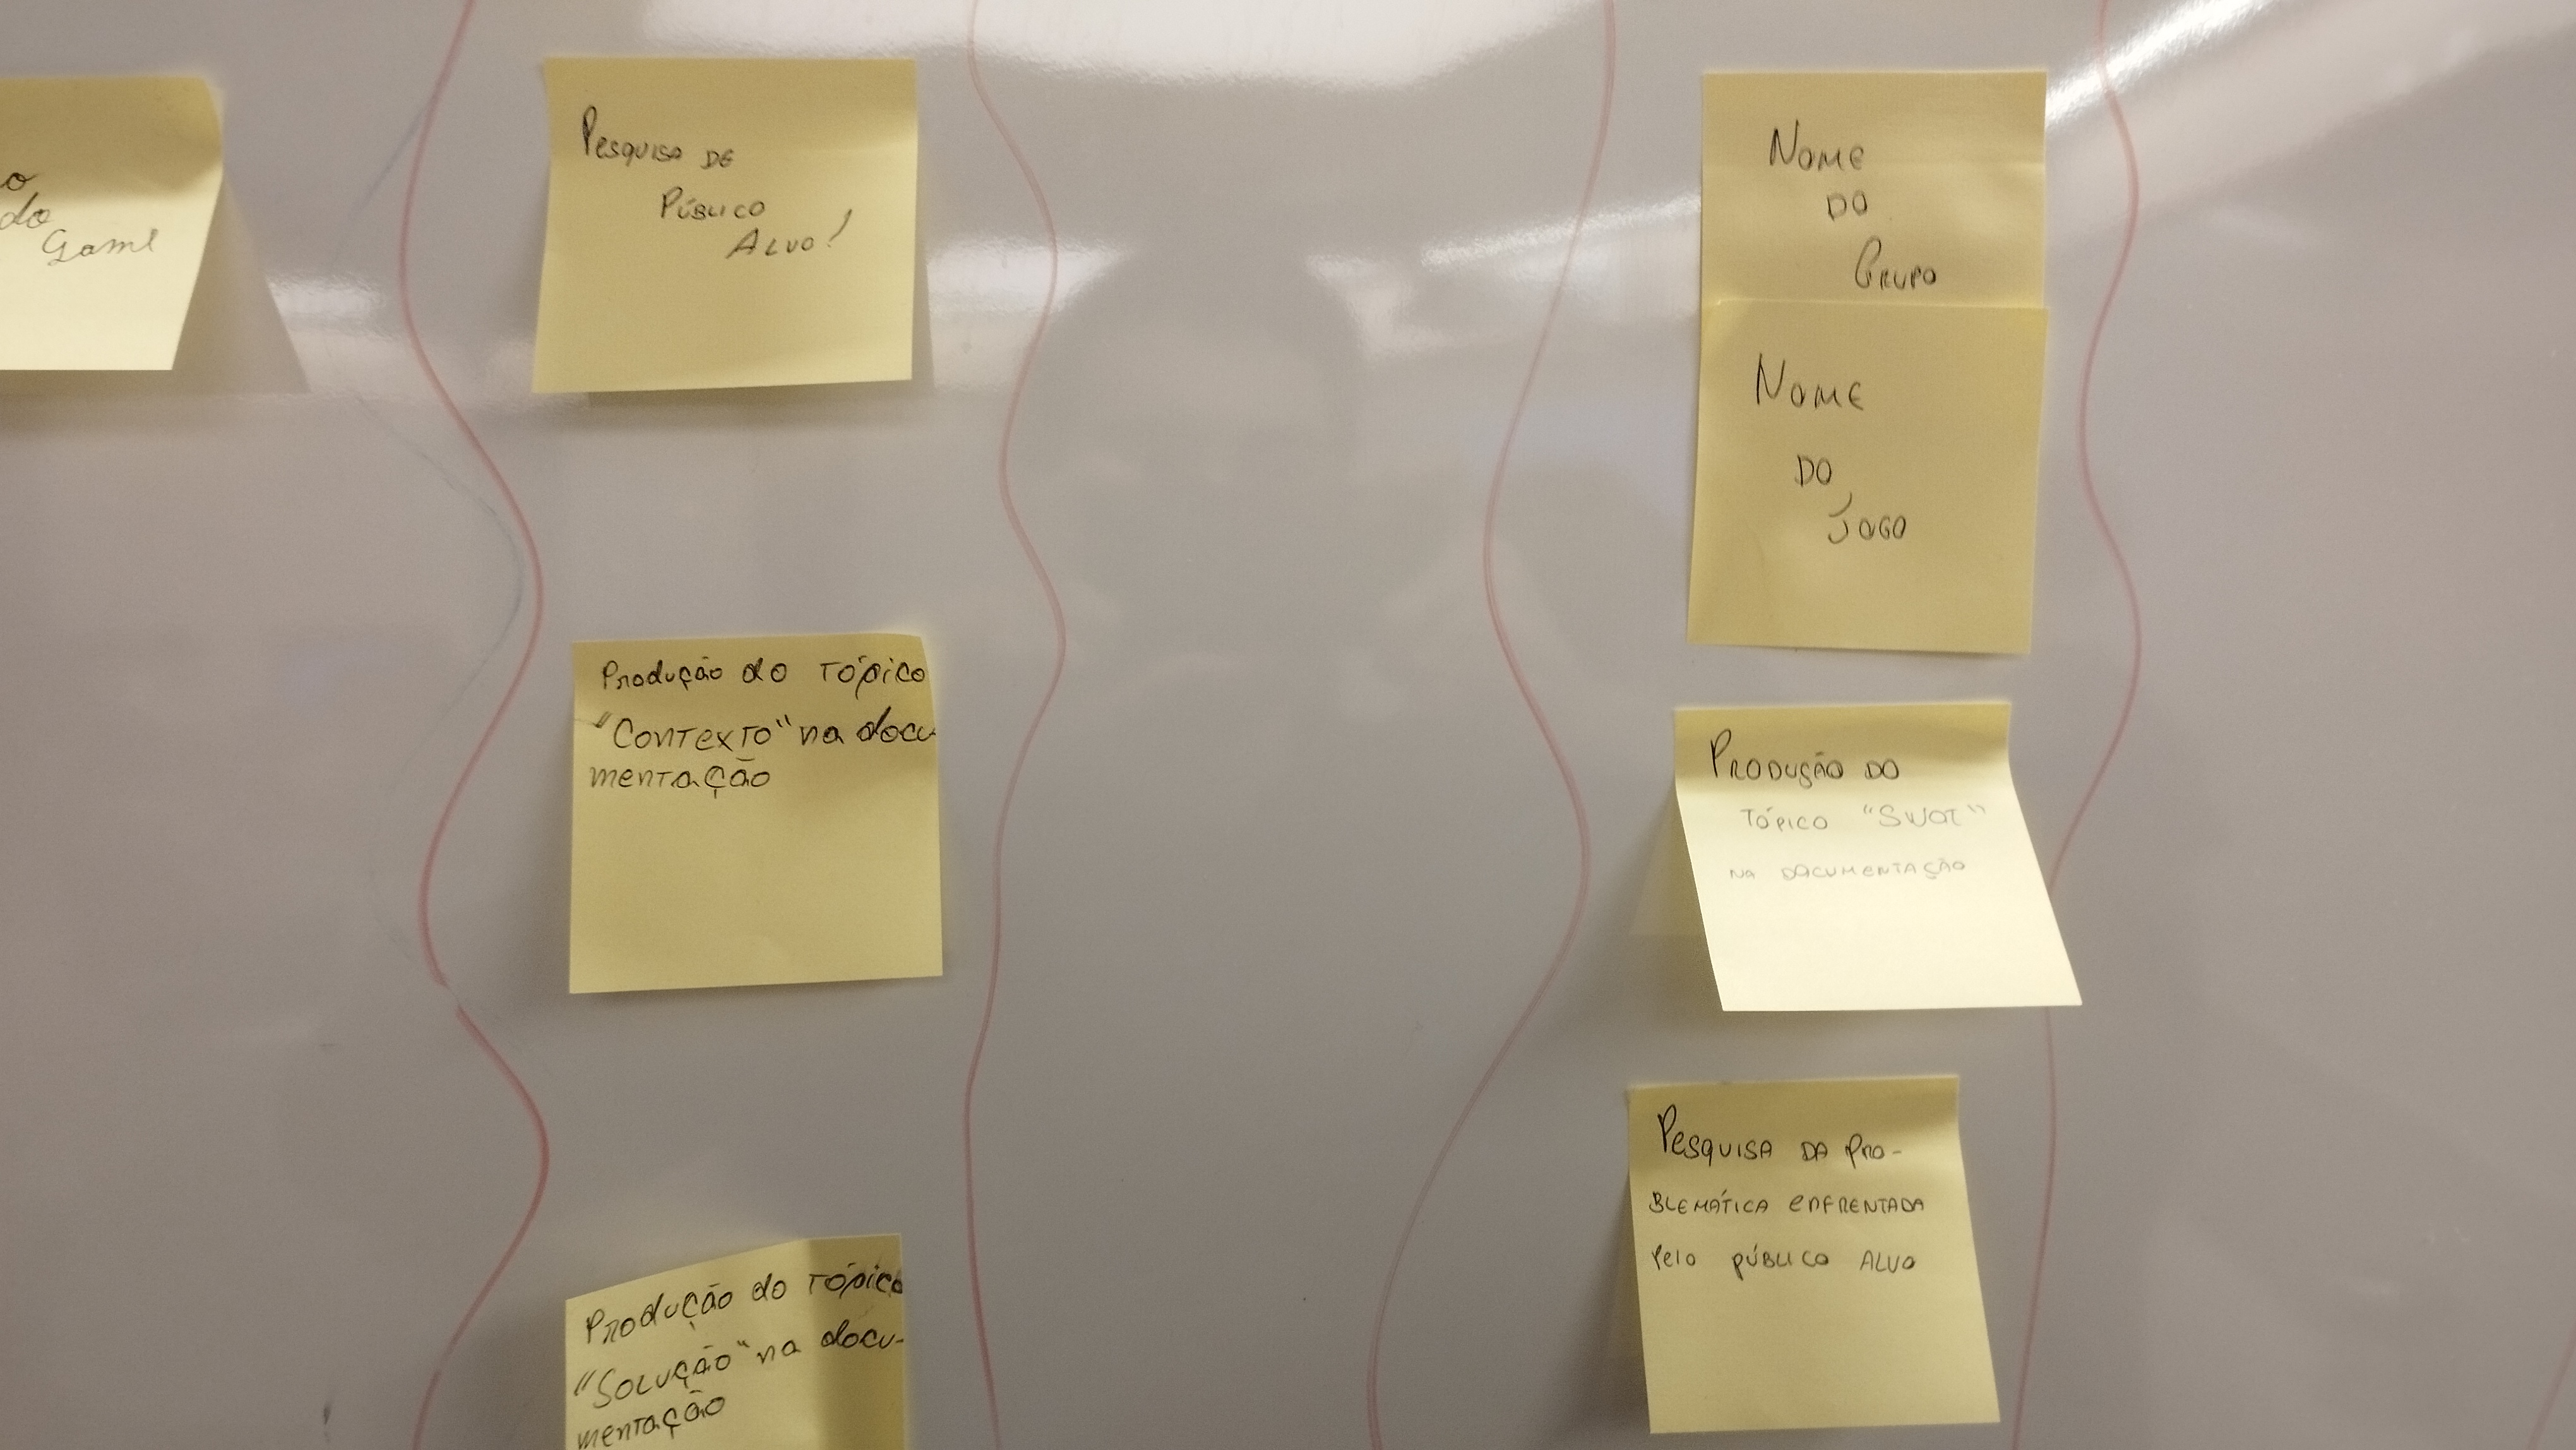 o
do
Game
Pesquisa de
Público
Alvo!
Produção do Tópico
"Contexto" na docu-
mentação
Produção do Tópico
"Solução" na docu-
mentação
Nome
do
Grupo
Nome
do
Jogo
Produção do
Tópico "SWOT"
na documentação
Pesquisa da pro-
blemática enfrentada
pelo público alvo